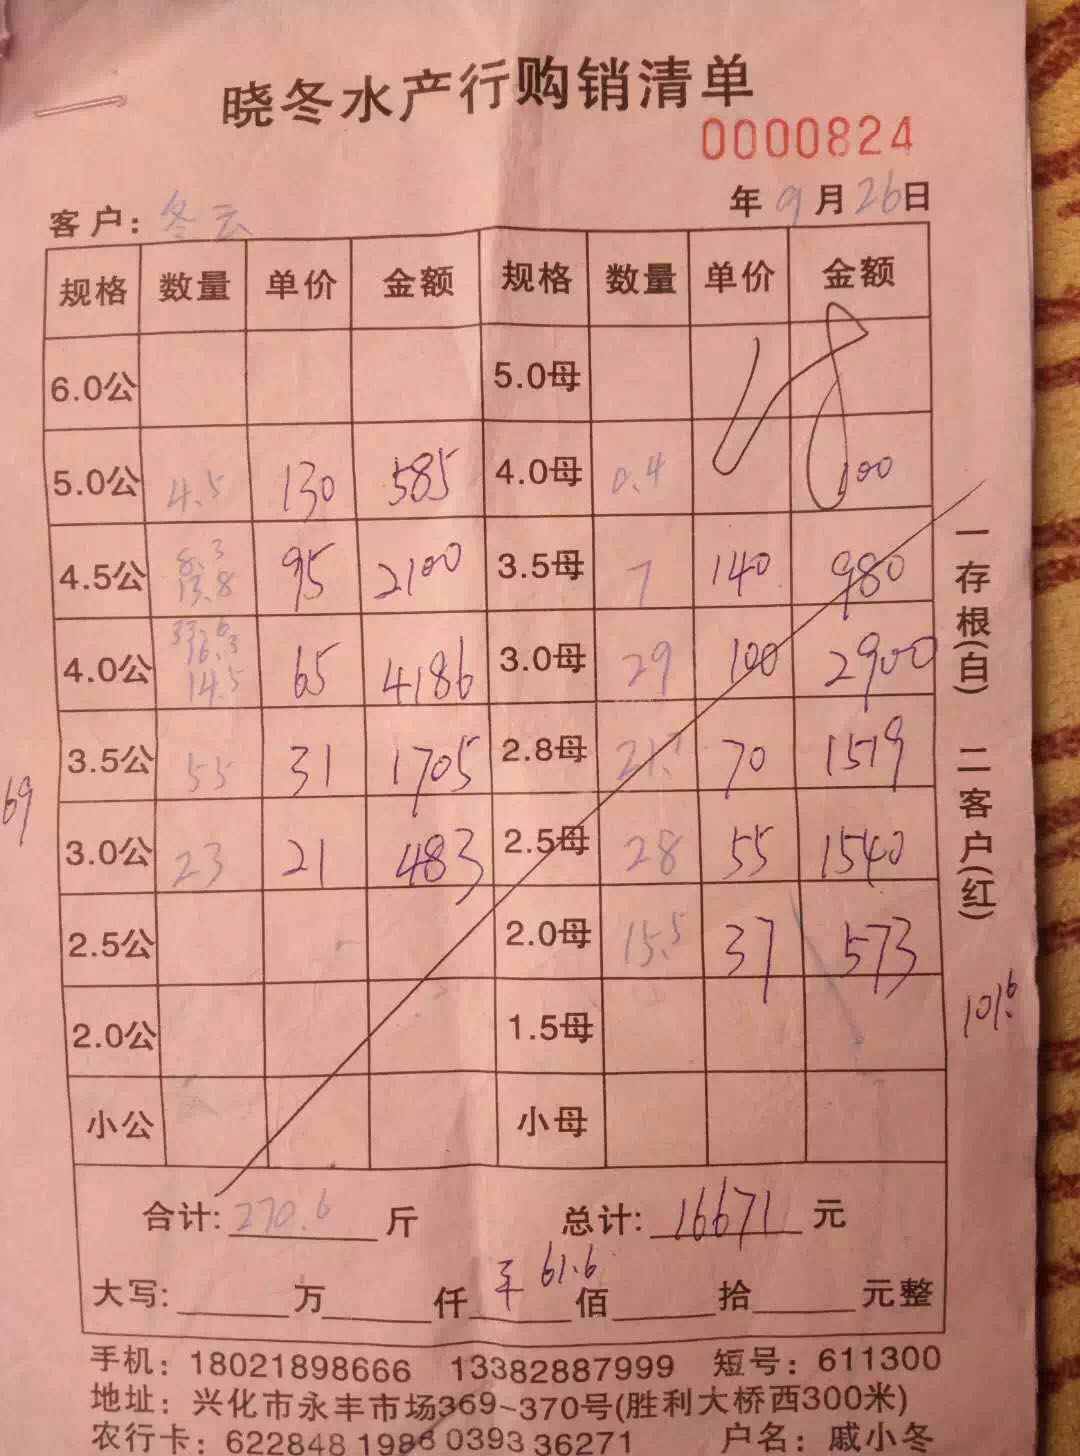 晓冬水产行购销清单
0000824
客户: 冬云 年 9 月 26 日
规格 数量 单价 金额 规格 数量 单价 金额
6.0公 5.0母
5.0公 4.5 130 585 4.0母 0.4 100
4.5公 8.3 13.8 95 2100 3.5母 7 140 980
4.0公 33.6 16.3 14.5 65 4186 3.0母 29 100 2900
3.5公 55 31 1705 2.8母 21.7 70 1519
3.0公 23 21 483 2.5母 28 55 1540
2.5公 2.0母 15.5 37 573
2.0公 1.5母
小公 小母
合计: 270.6 斤 总计: 16671 元
平 61.6
大写: 万 仟 佰 拾 元整
手机: 18021898666 13382887999 短号: 611300
地址: 兴化市永丰市场369~370号(胜利大桥西300米)
农行卡: 622848 1986 0393 36271 户名: 戚小冬
一存根(白) 二客户(红)
69
101.6